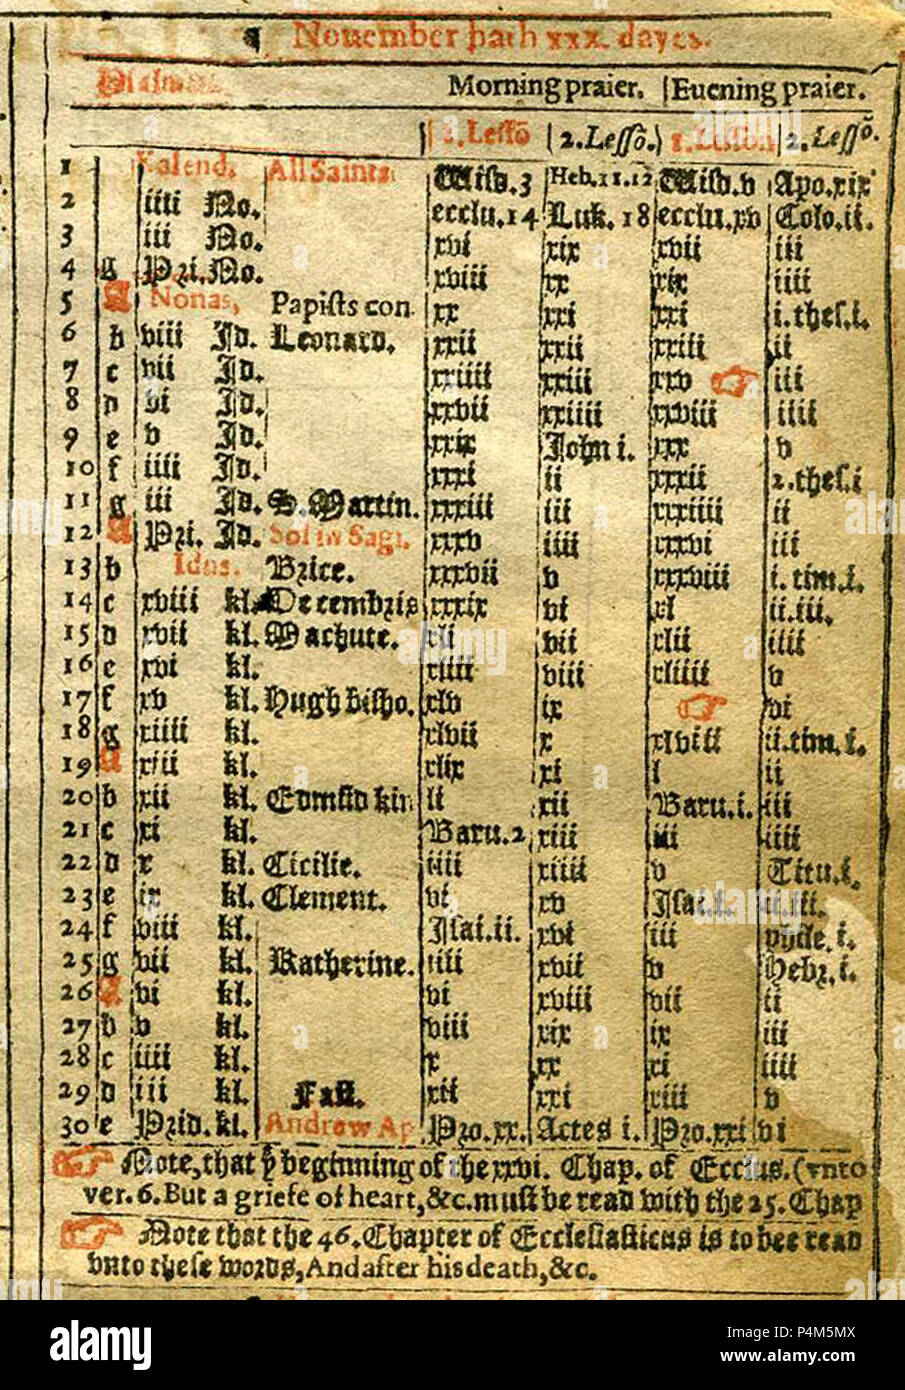 ¶ Nouember hath xxx. dayes.
Psalmes. Morning praier. Euening praier.
1. Lessō 2. Lessō. 1. Lesson 2. Lessō.
1 Kalend. All Saints. Wisd. 3 Heb. 11. 12 Wisd. v Apo. xix
2 iiii No. ecclu. 14 Luk. 18 ecclu. xv Colo. ii.
3 iii No. xvi xix xvii iii
4 g Pri. No. xviii xx xix iiii
5 A Nonas, Papists con. xx xxi xxi i. thes. i.
6 b viii Id. Leonard. xxii xxii xxiii ii
7 c vii Id. xxiiii xxiii xxv ☞ iii
8 d vi Id. xxvii xxiiii xxviii iiii
9 e v Id. xxix John i. xxx v
10 f iiii Id. xxxi ii xxxii 2. thes. i
11 g iii Id. S. Martin. xxxiii iii xxxiiii ii
12 A Pri. Id. Sol in Sagi. xxxv iiii xxxvi iii
13 b Idus. Brice. xxxvii v xxxviii i. tim. i.
14 c xviii kl. Decembris xxxix vi xl ii. iii.
15 d xvii kl. Machute. xli vii xlii iiii
16 e xvi kl. xliii viii xliiii v
17 f xv kl. Hugh bisho. xlv ix ☞ vi
18 g xiiii kl. xlvii x xlviii ii. tim. i.
19 A xiii kl. xlix xi l ii
20 b xii kl. Edmūd kin li xii Baru. i. iii
21 c xi kl. Baru. 2 xiii iii iiii
22 d x kl. Cicilie. iiii xiiii v Titu. i.
23 e ix kl. Clement. vi xv Isai. i. ii. iii.
24 f viii kl. Isai. ii. xvi iii phile. i.
25 g vii kl. Katherine. iiii xvii v Hebr. i.
26 A vi kl. vi xviii vii ii
27 b v kl. viii xix ix iii
28 c iiii kl. x xx xi iiii
29 d iii kl. Fast. xii xxi xiii v
30 e Prid. kl. Andrew Ap Pro. xx. Actes i. Pro. xxi vi
☞ Note, that yͤ beginning of the xxvi. Chap. of Ecclus. (vnto
ver. 6. But a griefe of heart, &c. must be read with the 25. Chap
☞ Note that the 46. Chapter of Ecclesiasticus is to bee read
vnto these words, And after his death, &c.
alamy
P4M5MX
www.alamy.com